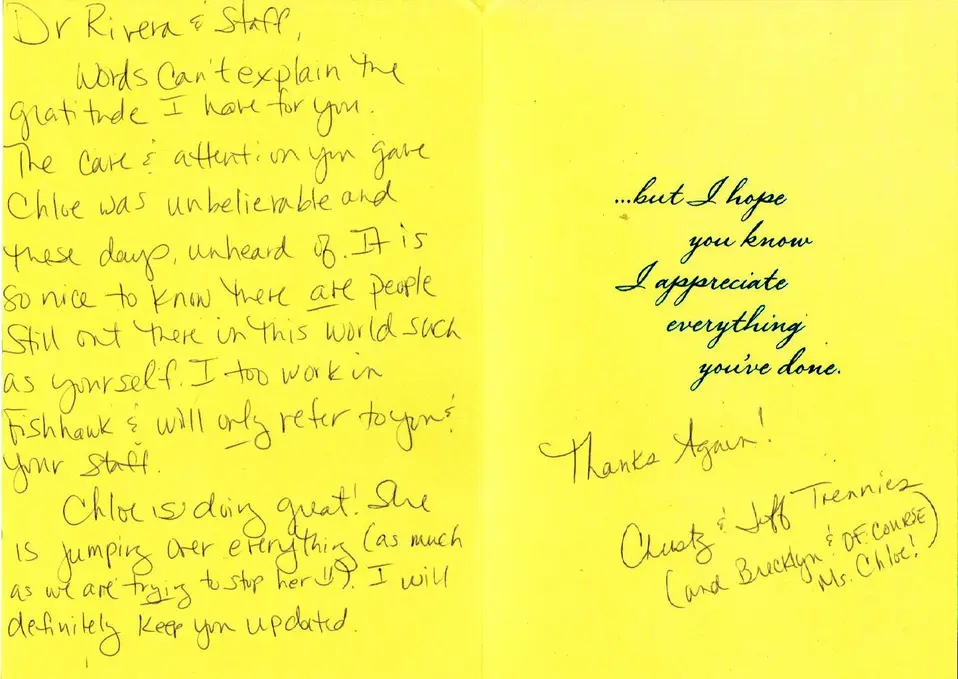 Dr Rivera & Staff,
Words Can't explain the
gratitude I have for you.
The care & attention you gave
Chloe was unbelievable and
these days, unheard of. It is
so nice to know there are people
still out there in this world such
as yourself. I too work in
Fishhawk & will only refer to you &
your staff.
Chloe is doing great! She
is jumping over everything (as much
as we are trying to stop her). I will
definitely keep you updated.
...but I hope
you know
I appreciate
everything
you've done.
Thanks Again!
& Jeff Trennies
(and Brecklyn & OF COURSE
Ms. Chloe!)